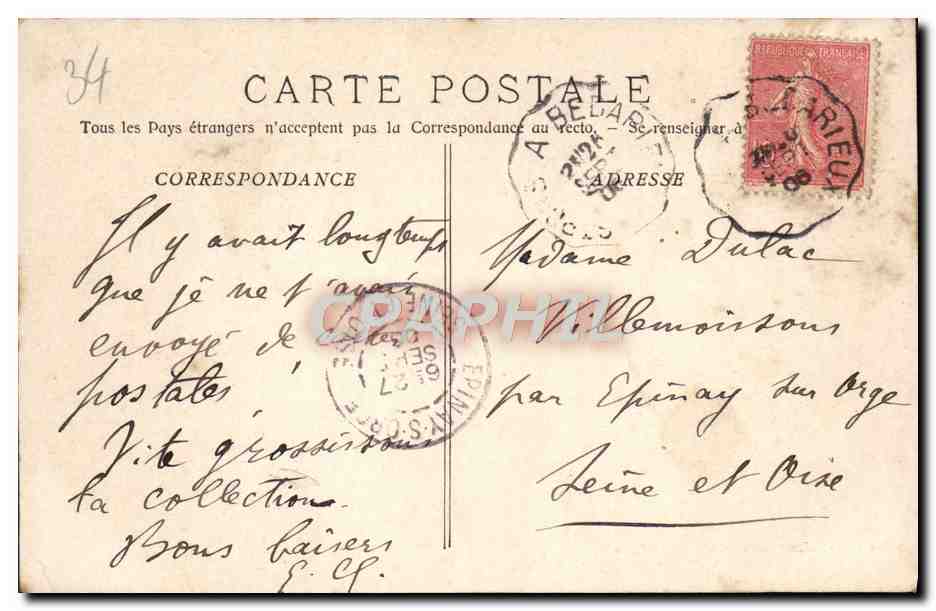 34
CARTE POSTALE
Tous les Pays étrangers n'acceptent pas la Correspondance au recto. - Se renseigner à
CORRESPONDANCE
ADRESSE
REPUBLIQUE FRANÇAISE
BEDARIEUX
ARIEUX
EPINAY-S-ORGE
27
SEPT
06
CPARPHIL
Il y avait longtemps
que je ne t'avais
envoyé de cartes
postales,
Vite grossissons
ta collection
Bons baisers
E. Cl.
Madame Dulac
Villemoissons
par Epinay sur Orge
Seine et Oise